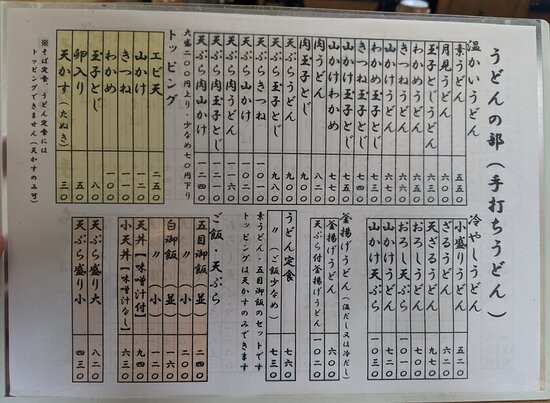 うどんの部(手打ちうどん)
温かいうどん
素うどん 五五〇
月見うどん 六〇〇
玉子とじうどん 六三〇
わかめうどん
きつねうどん
山かけうどん
わかめ玉子とじ
きつね玉子とじ
山かけ玉子とじ
山かけわかめ
肉うどん 八二〇
肉玉子とじ 九〇〇
天ぷらうどん 九〇〇
天ぷら玉子とじ 九八〇
天ぷらきつね
天ぷら肉うどん 一一六〇
天ぷら肉山かけ 一二四〇
大盛二〇〇円上り・少なめ七〇円下り
トッピング
エビ天
山かけ
きつね 一〇〇
わかめ 一〇〇
玉子とじ 八〇
卵入り 五〇
天かす(たぬき) 三〇
※そば定食、うどん定食には
トッピングできません(天かすのみ可)
冷やしうどん
小盛りうどん 五二〇
ざるうどん 六二〇
天ざるうどん 九七〇
おろしうどん
おろし天ぷら
山かけうどん
山かけ天ぷら
釜揚げうどん(温だし又は冷だし) 六〇〇
天ぷら付釜揚げうどん
うどん定食 七六〇
〃(ご飯少なめ) 七三〇
素うどん・五目御飯のセットです
トッピングは天かすのみできます
ご飯・天ぷら
五目御飯(並) 二四〇
〃(小) 二〇〇
白御飯(並) 一六〇
〃(小) 一二〇
天丼【味噌汁付】 九四〇
小天丼【味噌汁なし】 六三〇
天ぷら盛り大 八二〇
天ぷら盛り小 四三〇